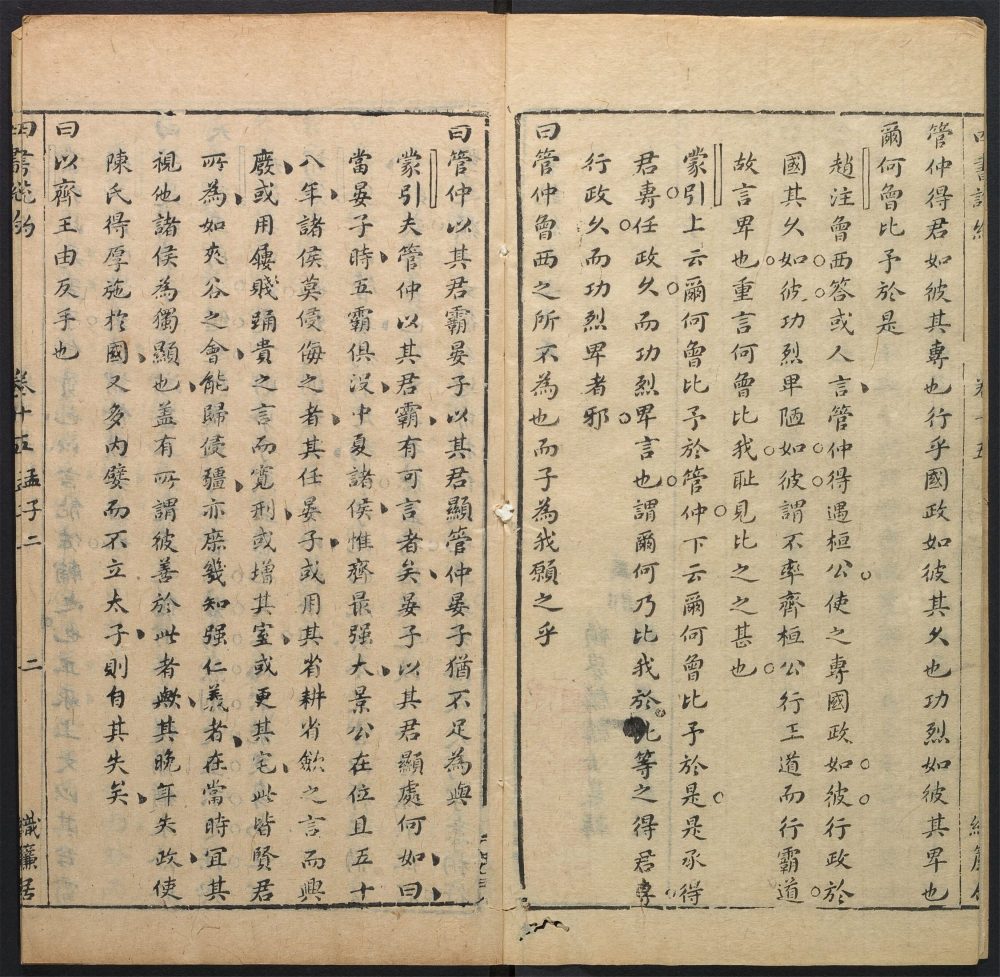 管仲得君如彼其專也行乎國政如彼其久也功烈如彼其卑也
爾何曾比予於是
趙注曾西答或人言管仲得遇桓公使之專國政如彼行政於
國其久如彼功烈卑陋如彼謂不率齊桓公行王道而行霸道
故言卑也重言何曾比我耻見比之之甚也
蒙引上云爾何曾比予於管仲下云爾何曾比予於是是承得
君專任政久而功烈卑言也謂爾何乃比我於此等之得君專
行政久而功烈卑者邪
曰管仲曾西之所不為也而子為我願之乎
曰管仲以其君霸晏子以其君顯管仲晏子猶不足為與
蒙引夫管仲以其君霸有可言者矣晏子以其君顯處何如曰
當晏子時五霸俱沒中夏諸侯惟齊最强大景公在位且五十
八年諸侯莫侵侮之者其任晏子或用其省耕省歛之言而興
廢或用鏤賤踊貴之言而寬刑或增其室或更其宅此皆賢君
所為如夾谷之會能歸侵疆亦庶幾知强仁義者在當時宜其
視他諸侯為獨顯也盖有所謂彼善於此者歟其晚年失政使
陳氏得厚施於國又多內嬖而不立太子則自其失矣
曰以齊王由反手也
四書 約 卷十五 孟子二 二 識簾居